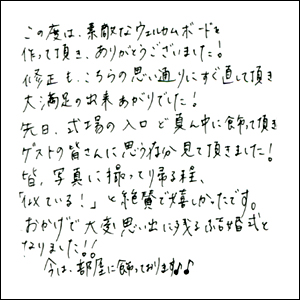 この度は、素敵なウェルカムボードを
作って頂き、ありがとうございました！
修正も、こちらの思い通りにすぐ直して頂き
大満足の出来あがりでした！
先日、式場の入口ど真ん中に飾って頂き
ゲストの皆さんに思う存分見て頂きました！
皆、写真に撮ってり帰る程、
「似ている！」と絶賛で嬉しかったです。
おかげで大変思い出に残る結婚式と
なりました!!
今は、部屋に飾っております♪♪